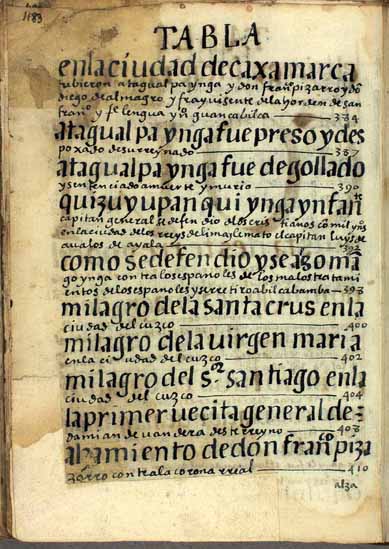 1183
TABLA
enlaciudad decaxamarca
ubieron atagualpa ynga y don franco pizarro y don
diego de almagro y fray uisente de la horden de san
franco y felipe lengua y don guancabilca 384
atagualpa ynga fue preso y des
poxado de su reynado 387
atagualpa ynga fue degollado
y sentenciado a muerte y murio 390
quizu yupanqui ynga ynfante
capitan general se defendio de los cristianos co mil yos
en la ciudad de los reys de lima le mato el capitan luys de
aualos de ayala 392
como se defendio y se alzo mā
go ynga contra los españoles de los malos tratami
entos de los españoles y se rretiro a bilcabamba 398
milagro de la santa crus en la
ciudad del cuzco 400
milagro de la uirgen maria
en la ciudad del cuzco 402
milagro del s.or santiago en la
ciudad del cuzco 404
la primer uecita general de
damian de uandera deste rreyno 408
alzamiento de don franco piza
zorro contra la corona rreal 410
alza